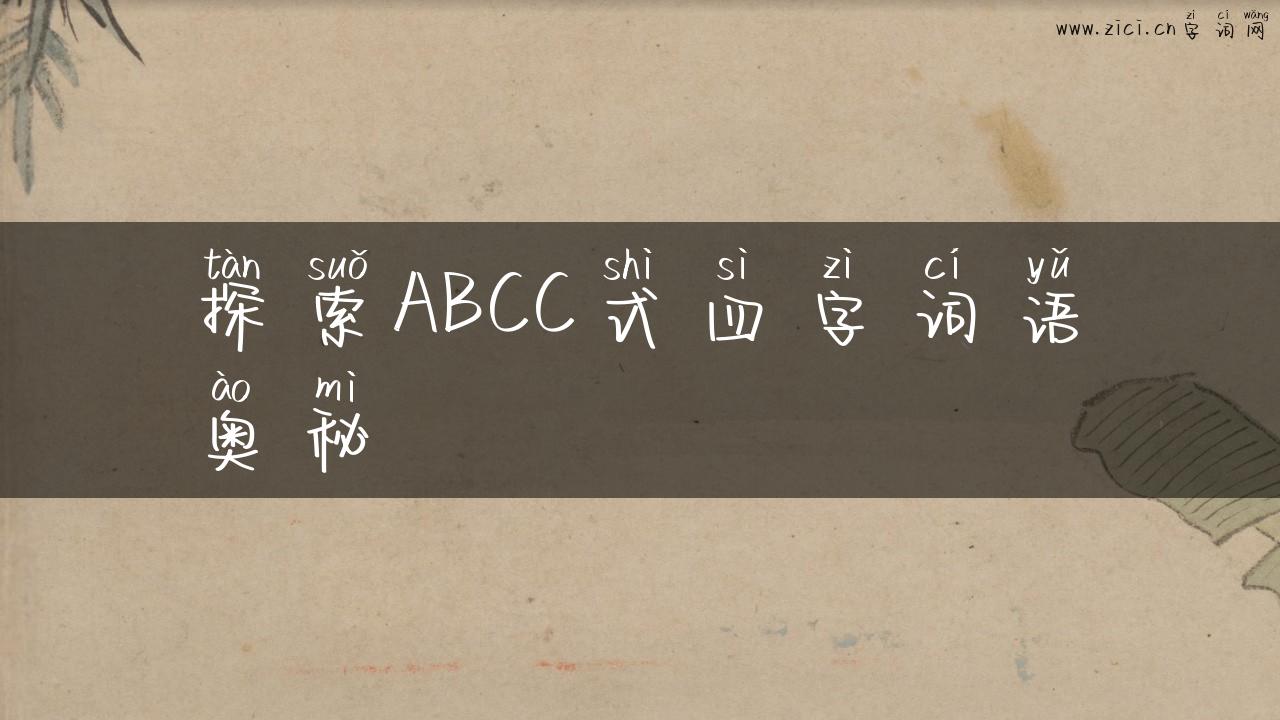 zì cí wǎng
www.zici.cn字词网
tàn suǒ shì sì zì cí yǔ
探索ABCC式四字词语
ào mì
奥秘